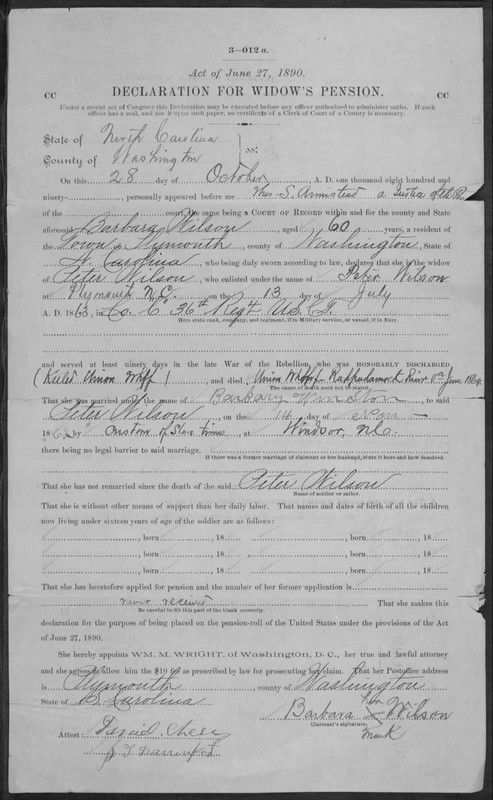 3—012 a.
Act of June 27, 1890.
CC DECLARATION FOR WIDOW'S PENSION. CC
Under a recent act of Congress this Declaration may be executed before any officer authorized to administer oaths. If such
officer has a seal, and use it upon such paper, no certificate of a Clerk of Court of a County is necessary.
State of North Carolina
County of Washington ss:
On this 28 day of October, A. D. one thousand eight hundred and
ninety-, personally appeared before me S. Armistead a Justice of the
of the court, the same being a COURT OF RECORD within and for the county and State
aforesaid Barbara Wilson, aged 60 years, a resident of
the Town of Plymouth, county of Washington, State of
N. Carolina, who being duly sworn according to law, declares that she is the widow
of Peter Wilson, who enlisted under the name of Peter Wilson
at Plymouth N.C. on the 13 day of July
A. D. 1863, in Co. C 36th Regt U.S.C.
Here state rank, company, and regiment, if in Military service, or vessel, if in Navy.
and served at least ninety days in the late War of the Rebellion, who was HONORABLY DISCHARGED
(Killed Union), and died Union June 1864
The cause of death need not be stated.
That she was married under the name of Barbara Winston, to said
Peter Wilson, on the 14 day of
186 by custom of Slave times, at Windsor, N.C.
there being no legal barrier to said marriage.
If there was a former marriage of claimant or her husband, state it here and how dissolved.
That she has not remarried since the death of the said Peter Wilson
Name of soldier or sailor.
That she is without other means of support than her daily labor. That names and dates of birth of all the children
now living under sixteen years of age of the soldier are as follows:
, born, 18 , born, 18
, born, 18 , born, 18
, born, 18 , born, 18
That she has heretofore applied for pension and the number of her former application is
never received That she makes this
Be careful to fill this part of the blank correctly.
declaration for the purpose of being placed on the pension-roll of the United States under the provisions of the Act
of June 27, 1890.
She hereby appoints WM. M. WRIGHT, of Washington, D. C., her true and lawful attorney
and she agrees to allow him the $10 00 as prescribed by law for prosecuting her claim. That her Postoffice address
is Plymouth, county of Washington
State of N. Carolina
Barbara her X Wilson
Claimant's signature.
mark
Attest: Daniel
J T